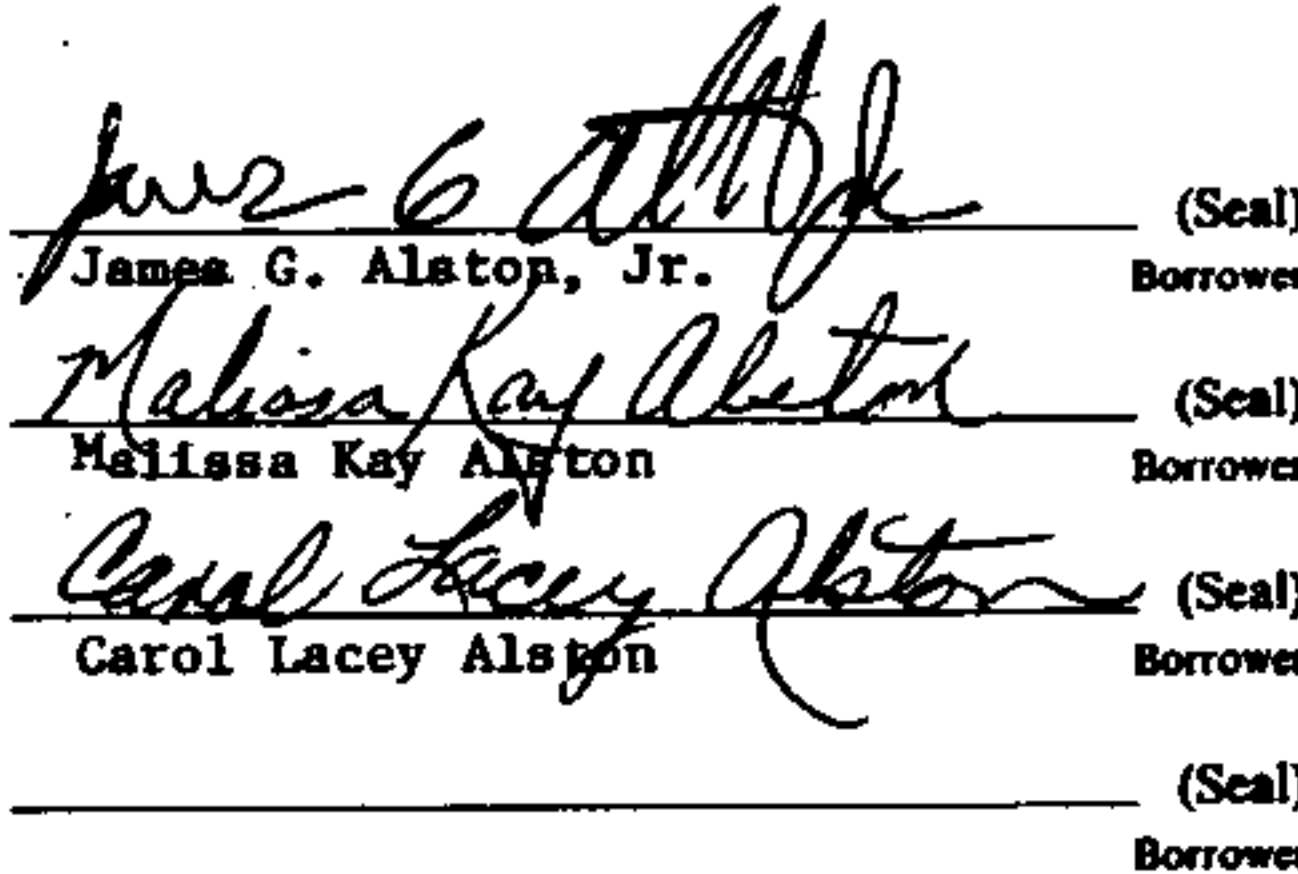 James G Alston Jr (Seal)
James G. Alston, Jr. Borrower
Melissa Kay Alston (Seal)
Melissa Kay Alston Borrower
Carol Lacey Alston (Seal)
Carol Lacey Alston Borrower
(Seal)
Borrower